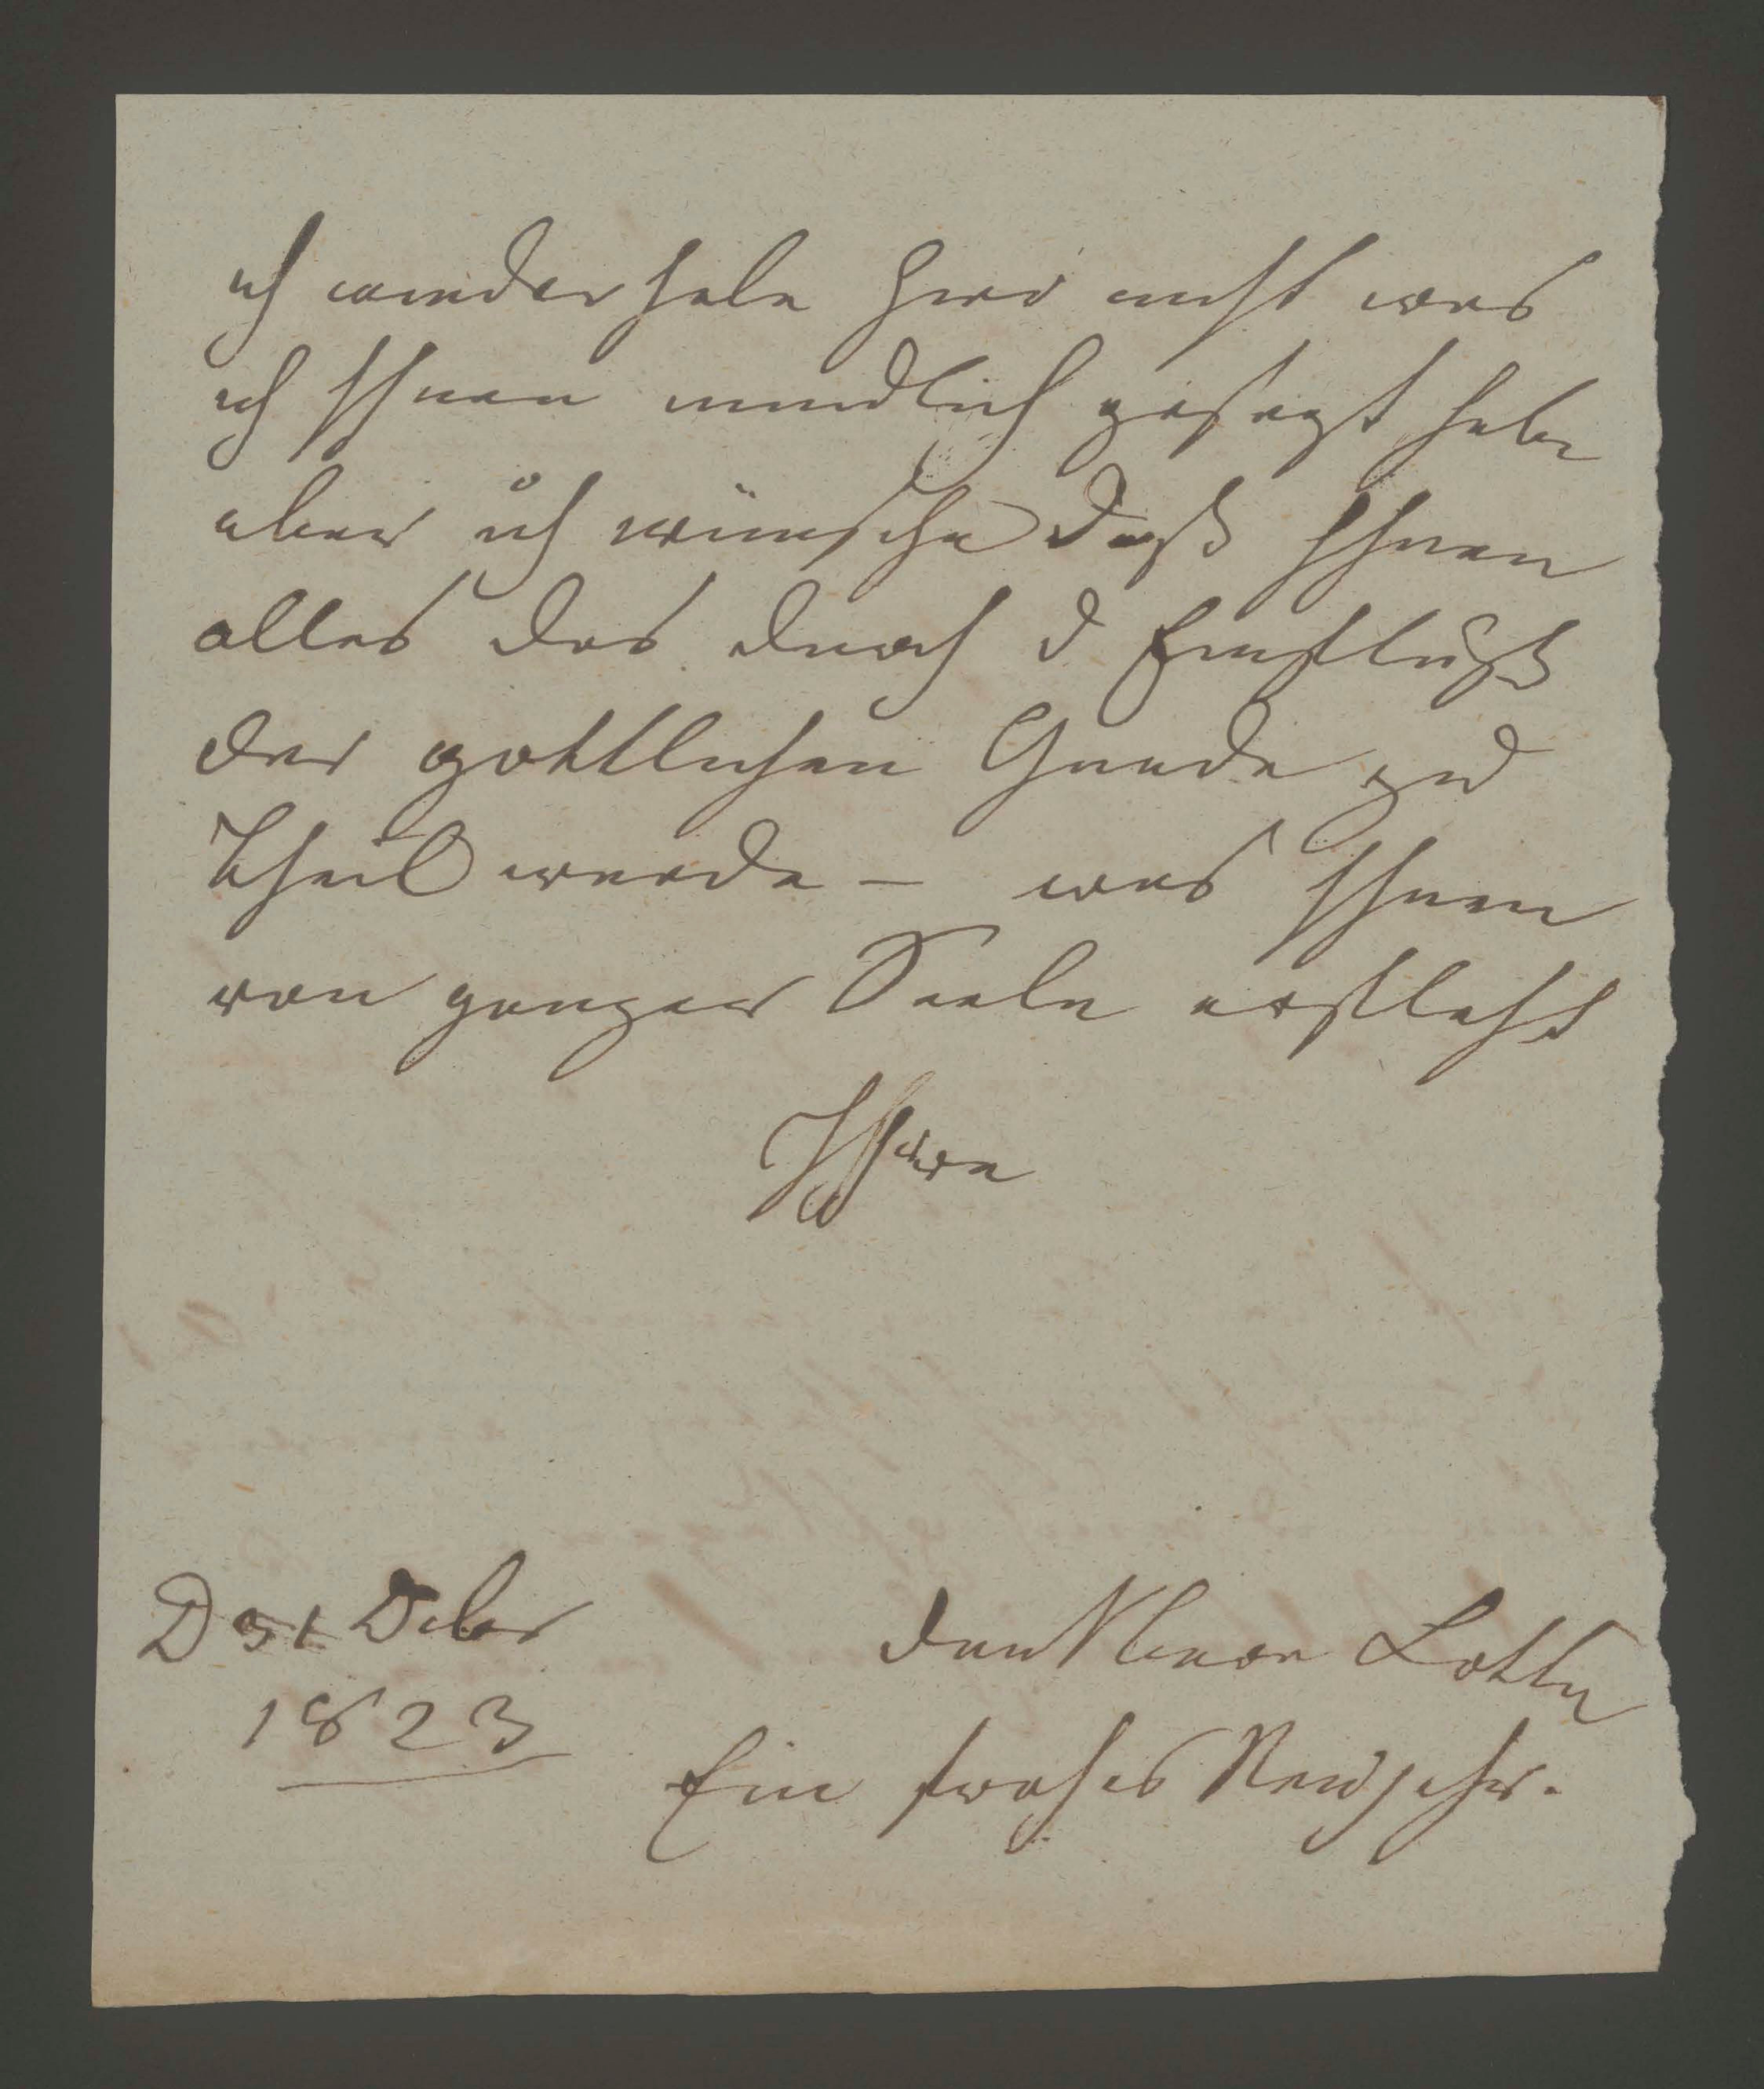 ich wiederhole hier nicht was
ich Ihnen mundlich gesagt habe
aber ich wünsche daß Ihnen
alles das durch d Einfluß
der gottlichen Gnade zu
Theil werde – was Ihnen
von ganzer Seele erfleht
Ihre
D 31 Decbr
1823
Ein frohes Neujahr.